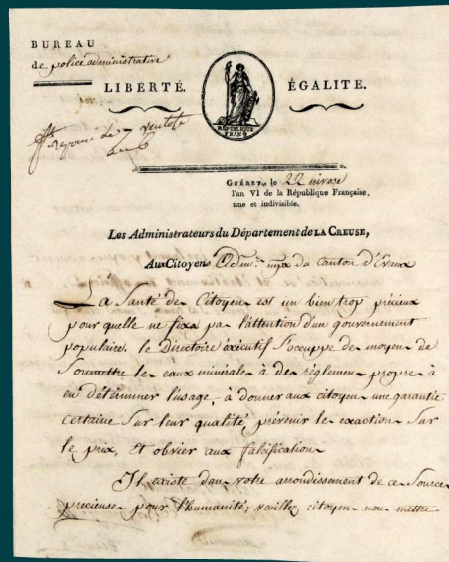 BUREAU
de police administrative
LIBERTÉ. ÉGALITE.
RÉPUBLIQUE
FRANÇ
repondu le 7 ventose
an 6
GUÉRET, le 22 nivose
l'an VI de la République Française,
une et indivisible.
Les Administrateurs du Département de LA CREUSE,
Aux Citoyens Adm.rs du Canton d'Evaux
La Santé des Citoyens est un bien trop précieux
pour quelle ne fixa pas l'attention d'un gouvernement
populaire. le Directoire éxécutif s'occuppe des moyens de
Soumettre les eaux minérales à des réglemens propres à
en déterminer l'usage, à donner aux citoyens une garantie
certaine Sur leur qualité, prévenir les exactions Sur
le prix, et obvier aux falsifications
Il existe dans votre arrondissement de ces Sources
precieuses pour l'humanité, veuillez, citoyens nous mettre